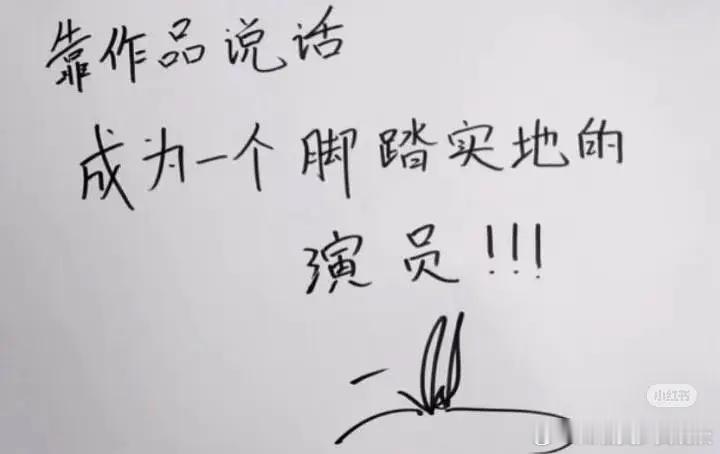 靠作品说话
成为一个脚踏实地的
演员!!!
小红书